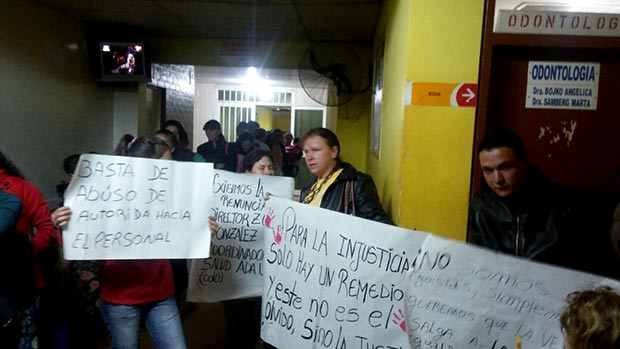 ODONTOLOG
ODONTOLOGÍA
Dra. BOJKO ANGELICA
Dra. SAMBERG MARTA
BASTA DE
ABÚSO DE
AUTORIDAD HACIA
EL PERSONAL
EXIGIMOS LA
RENUNCIA
DIRECTOR
GONZALEZ
COORDINADOR
SALUD
PARA LA INJUSTICIA
SOLO HAY UN REMEDIO
Y ESTE NO ES EL
OLVIDO, SINO LA JUSTI
NO SOMOS
SIMPLEME
QUEREMOS QUE LA VE
SALGA A